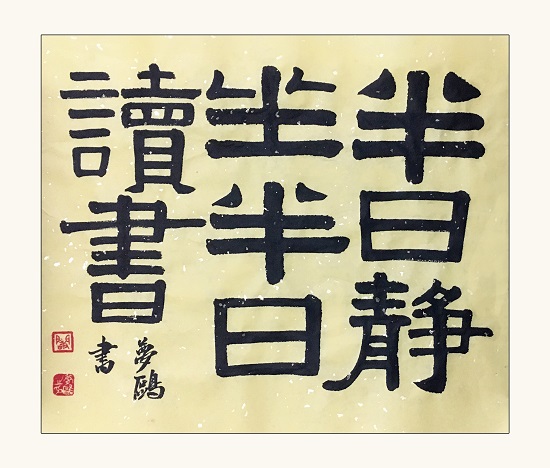 半日静
坐半日
讀書
夢鷗
書